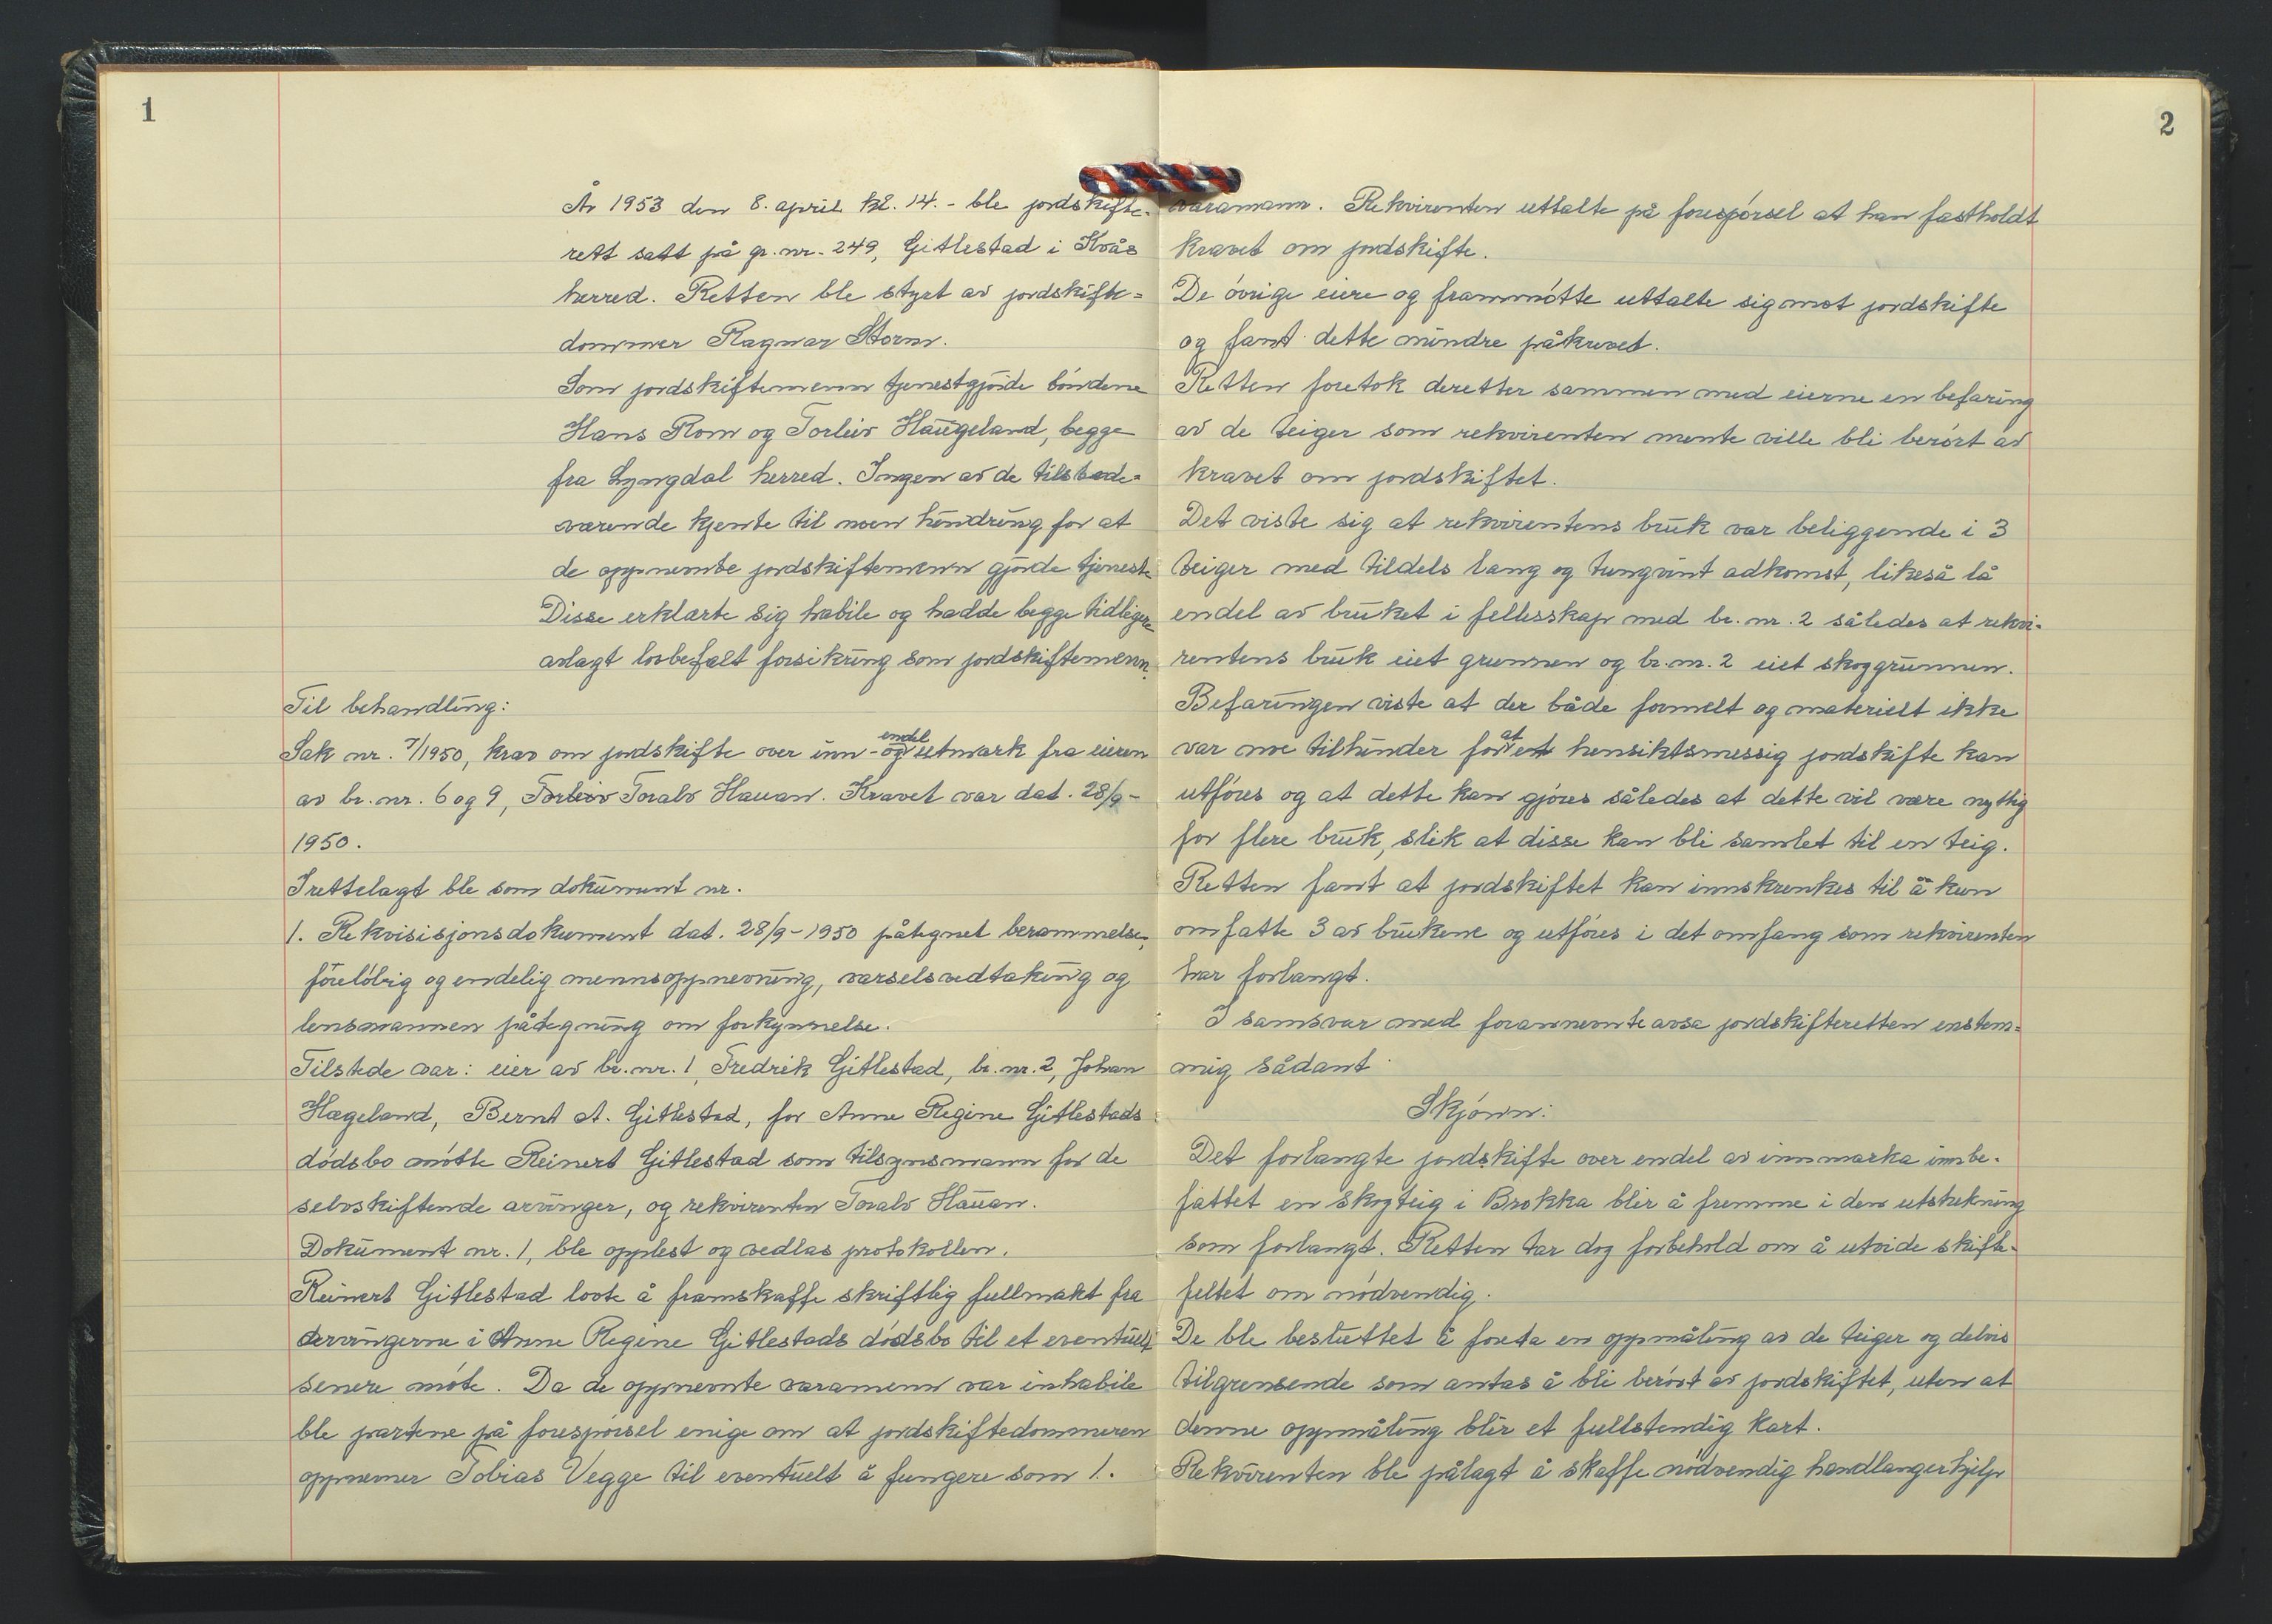 1
År 1953 den 8. april kl. 14.- ble jordskifte-
rett satt på gr. nr. 249, Gitlestad i Kvås
herred. Retten ble styrt av jordskifte=
dommer Ragnar Storm.
Som jordskiftemenn tjenestgjörde böndene
Hans Rom og Torleiv Haugeland, begge
fra Lyngdal herred. Ingen av de tilstede=
værende kjente til noen hindring for at
de oppnevnte jordskiftemenn gjorde tjeneste
Disse erklærte sig habile og hadde begge tidligere
avlagt lovbefalt forsikring som jordskiftemenn.
Til behandling:
Sak nr. 7/1950, krav om jordskifte over inn- og endel utmark fra eieren
av br. nr. 6 og 9, Torleiv Toralv Hauan. Kravet var dat. 28/9-
1950.
Irettelagt ble som dokument nr.
1. Rekvisisjonsdokument dat. 28/9-1950 påtegnet berammelse,
förelöbig og endelig mennsoppnevning, varselsvedtaking og
lensmannen påtegning om forkynnelse.
Tilstede var: eier av br. nr. 1, Fredrik Gitlestad, br. nr. 2, Johan
Hægeland, Bernt A. Gitlestad, for Anne Regine Gitlestads
dödsbo mötte Reinert Gitlestad som tilsynsmann for de
selvskiftende arvinger, og rekvirenten Toralv Hauan.
Dokument nr. 1, ble opplest og vedlas protokollen.
Reinert Gitlestad lovte å framskaffe skriftlig fullmakt fra
arvingerne i Anne Regine Gitlestads dödsbo til et eventuelt
senere möte. Da de oppnevnte varamenn var inhabile
ble partene på forespörsel enige om at jordskiftedommeren
oppnevner Tobias Vegge til eventuelt å fungere som 1.
2
varamann. Rekvirenten uttalte på forespörsel at han fastholdt
kravet om jordskifte.
De övrige eiere og frammötte uttalte sig mot jordskifte
og fant dette mindre påkrevet.
Retten foretok deretter sammen med eierne en befaring
av de teiger som rekvirenten mente ville bli berört av
kravet om jordskiftet.
Det viste sig at rekvirentens bruk var beliggende i 3
teiger med tildels lang og tungvint adkomst, likeså lå
endel av bruket i fellesskap med br. nr. 2 således at rekvi-
rentens bruk eiet grunnen og br. nr. 2 eiet skoggrunnen.
Befaringen viste at der både formelt og materielt ikke
var noe tilhinder for at et hensiktsmessig jordskifte kan
utföres og at dette kan gjöres således at dette vil være nyttig
for flere bruk, slik at disse kan bli samlet til en teig.
Retten fant at jordskiftet kan innskrenkes til å kun
omfatte 3 av brukene og utföres i det omfang som rekvirenten
har forlangt.
I samsvar med forannevnte avsa jordskifteretten enstem=
mig sådant
Skjönn:
Det forlangte jordskifte over endel av innmarka innbe-
fattet en skogteig i Brokka blir å fremme i den utstrekning
som forlangt. Retten tar dog forbehold om å utvide skifte-
feltet om nödvendig.
De ble besluttet å foreta en oppmåling av de teiger og delvis
tilgrensende som antas å bli berört av jordskiftet, uten at
denne oppmåling blir et fullstendig kart.
Rekvirenten ble pålagt å skaffe nödvendig handlangerhjelp